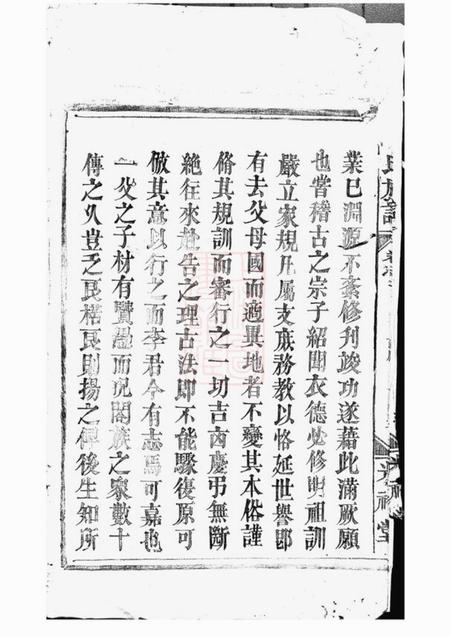 業已淵源不紊修刋竣功遂藉此滿厥願
也嘗稽古之宗子紹聞衣德必修明祖訓
嚴立家規凡屬支庶務教以恪延世譽即
有去父母國而適異地者不變其本俗謹
脩其規訓而審行之一切吉凶慶弔無斷
絶往來赴告之理古法即不能驟復原可
倣其意以行之而李君今有志焉可嘉也
一父之子材有賢愚而況闔族之衆數十
傳之久豈乏民楛民則揚之俾後生知所